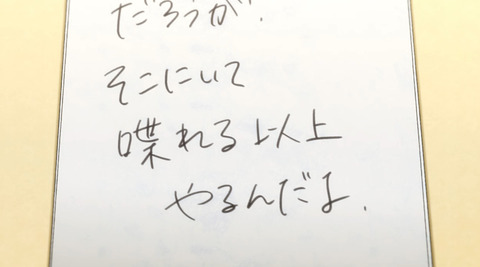 だろうが.
そこにいて
喋れる以上
やるんだよ.